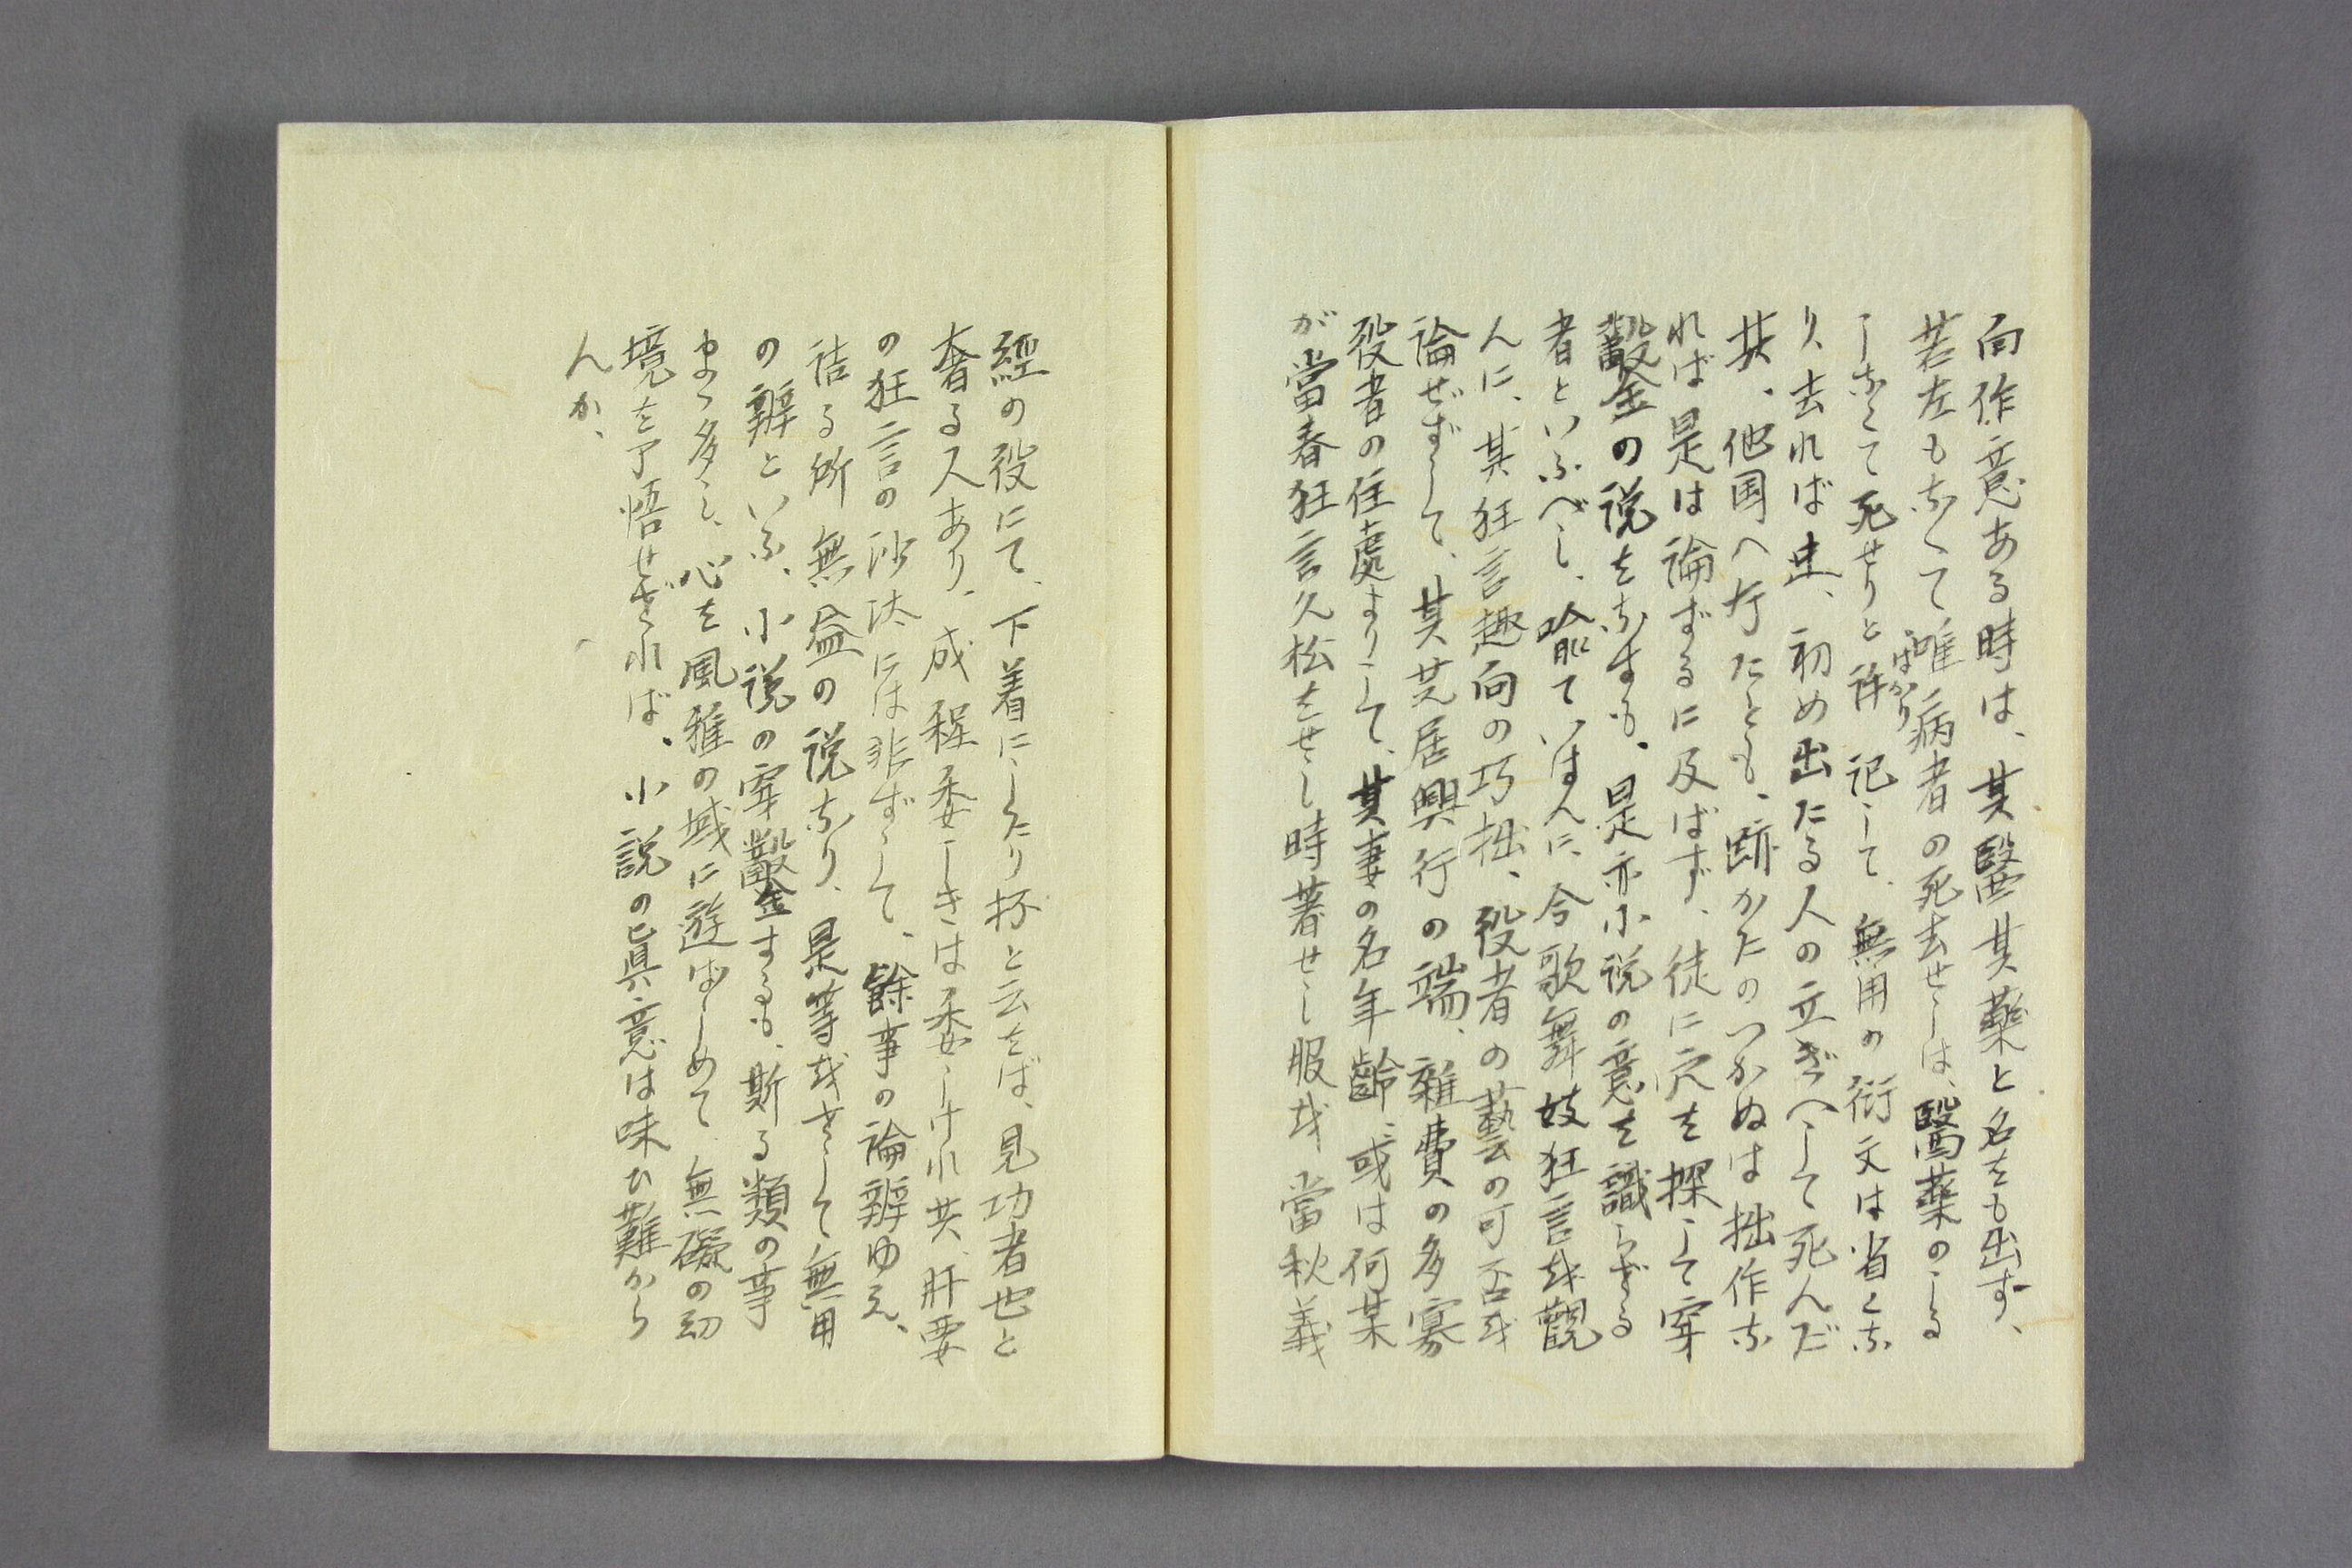 向作意ある時は、其醫其藥と名をも出ず、
若左もなくて唯病者の死去せしは、醫藥のしる
しなくて死せりと許ばかり記して、無用の衍文は省くな
り、去れば迚、初め出たる人の立ぎへして死んだ
共、他国へ行たとも、跡かたのつかぬは拙作な
れば是は論ずるに及ばず、徒に穴を探して穿
鑿の説をなすも、是亦小説の意を識らざる
者といふべし、喩ていはんに、今歌舞妓狂言を觀
んに、其狂言趣向の巧拙、役者の藝の可否を
論ぜずして、其芝居興行の端、雜費の多寡
役者の住處よりして、其妻の名年齡、或は何某
が當春狂言久松をせし時著せし服を當秋義
經の役にて、下着にしたり抔と云をば、見功者也と
奢る人あり、成程委しきは委しけれ共、肝要
の狂言の沙汰には非ずして、餘事の論辨ゆえ、
詰る所無益の説なり、是等をさして無用
の辨といふ、小説の穿鑿するも、斯る類の事
まゝ多し、心を風雅の域に遊ばしめて、無礙の幻
境を了悟せざれば、小説の眞意は味ひ難から
んか、